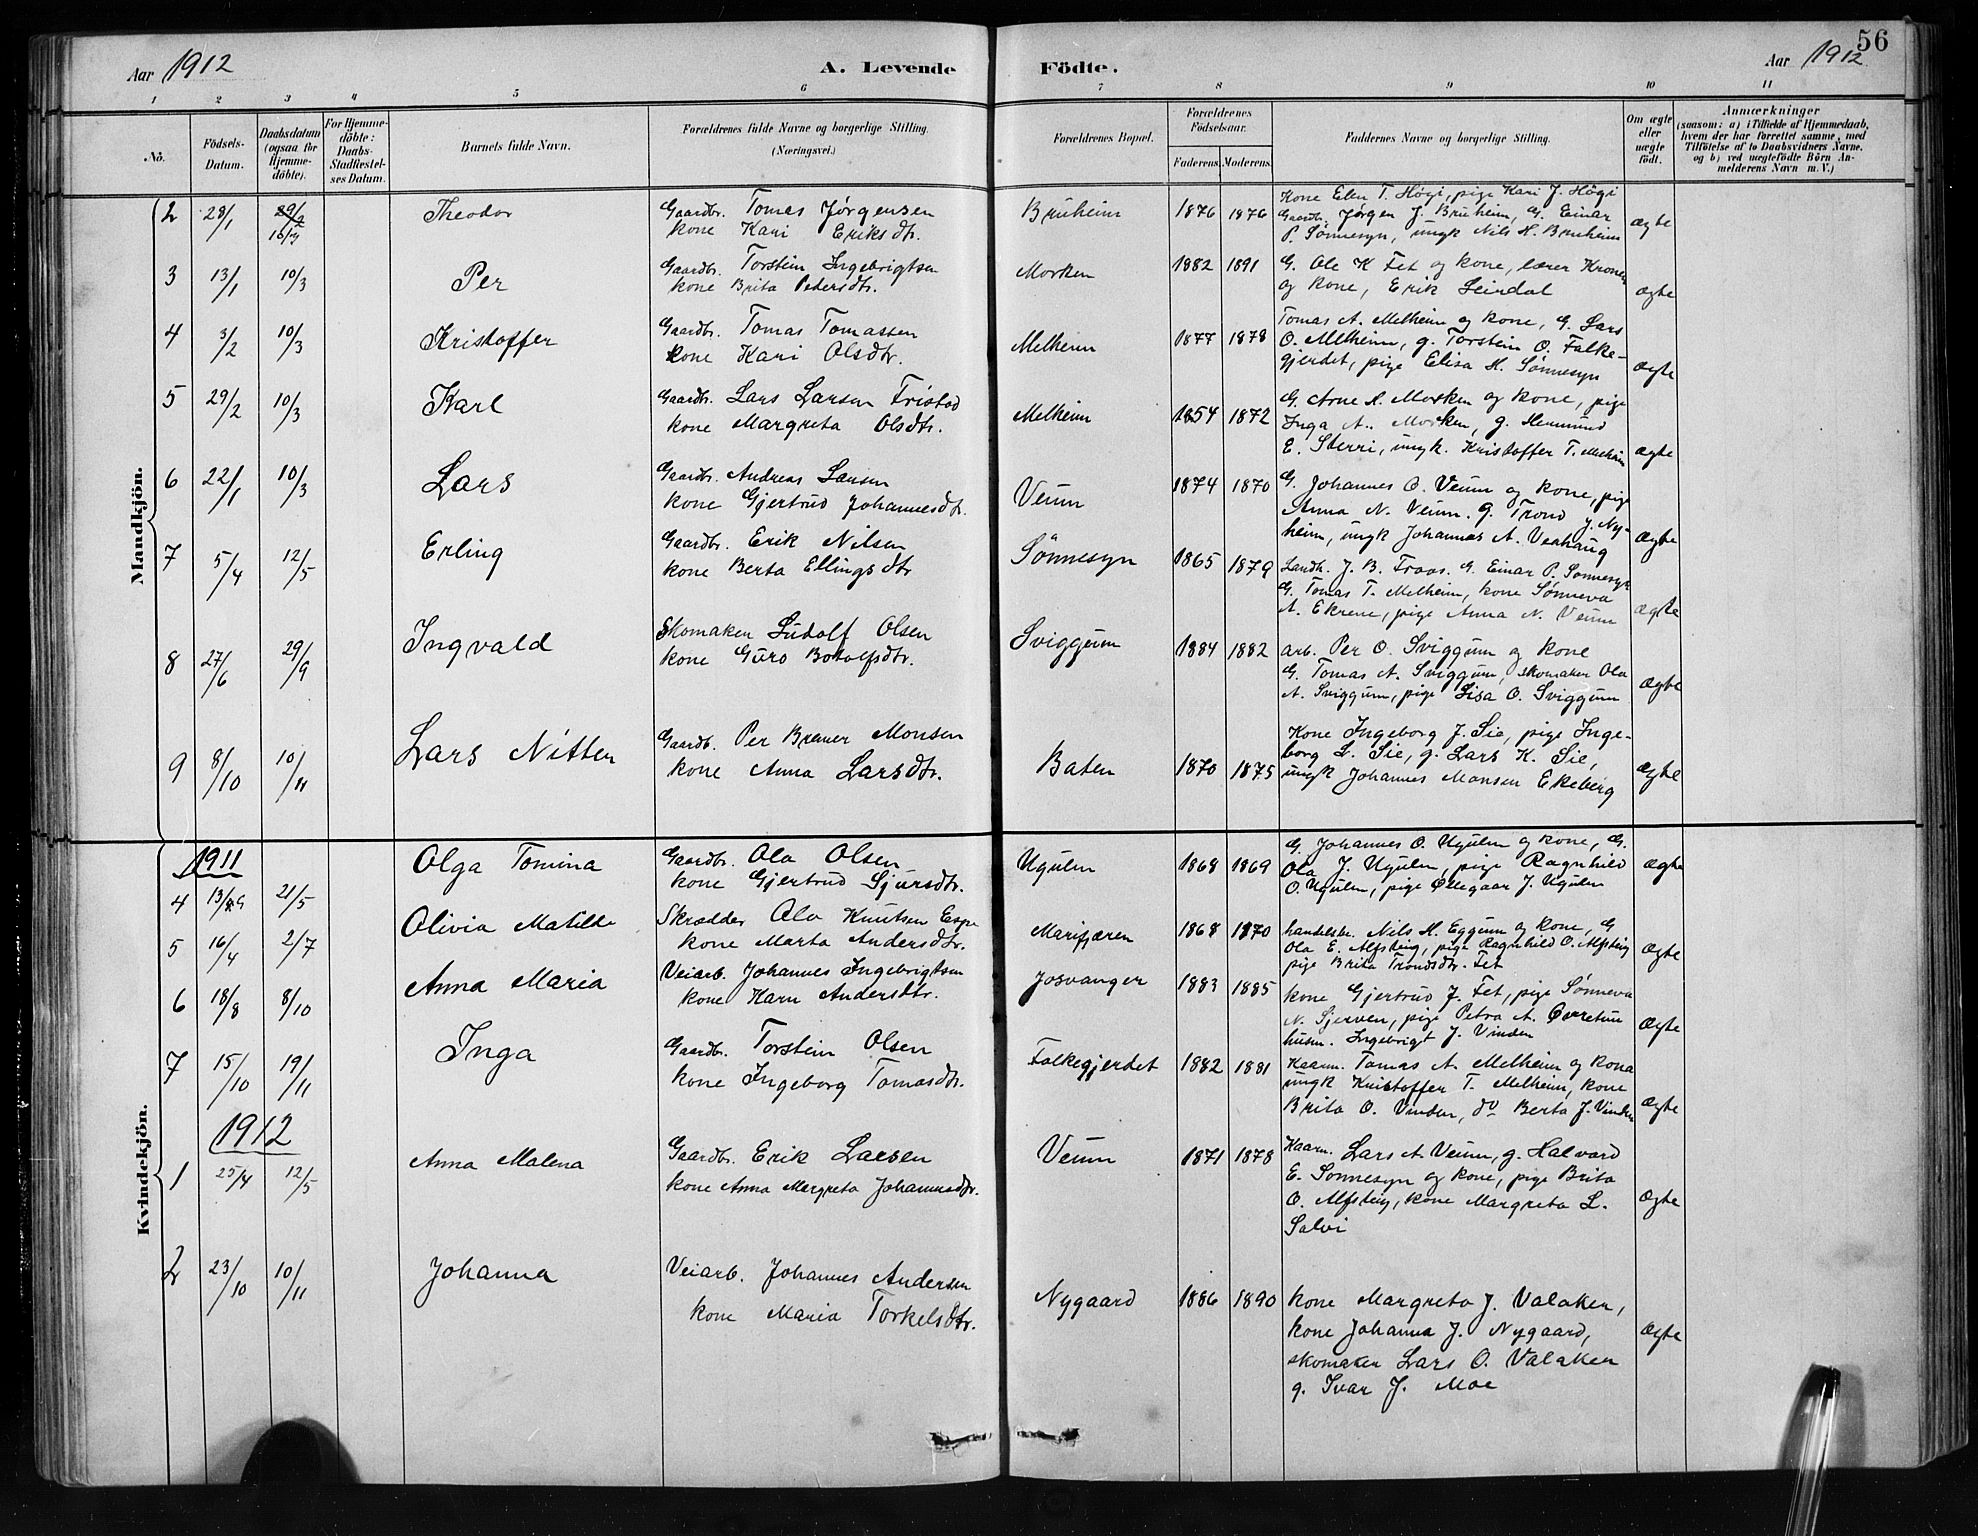 56
Aar 1912
A. Levende Födte.
Aar 1912
1 2 3 4 5 6 7 8 9 10 11
No.
Födsels-
Datum.
Daabsdatum
(ogsaa for
Hjemme-
döbte).
For Hjemme-
döbte:
Daabs-
Stadfæstel-
ses Datum.
Barnets fulde Navn.
Forældrenes fulde Navne og borgerlige Stilling.
(Næringsvei.)
Forældrenes Bopæl.
Forældrenes
Födselsaar.
Faderens. Moderens.
Faddernes Navne og borgerlige Stilling.
Om ægte
eller
uægte
födt.
Anmærkninger
(saasom: a) i Tilfælde af Hjemmedaab,
hvem der har forrettet samme, med
Tilföielse af to Daabsvidners Navne.
og b) ved uægtefödte Börn An-
melderens Navn m. V.)
Mandkjön.
2 28/1 29/2 Theodor Gaardbr. Tomas Jørgensen Bruheim 1876 1876 Kone Elen T. Högi, pige Kari J. Högi
kone Kari Eriksdtr. Gaardb. Jørgen J. Bruheim, G. Einar ægte
P. Sønnesyn, ungk Nils H. Bruheim
3 13/1 10/3 Per Gaardbr. Torstein Ingebrigtsen Morken 1882 1891 G. Ole K Fet og kone, lærer Kronen
kone Brita Pedersdtr. og kone, Erik Leirdal ægte
4 3/2 10/3 Kristoffer Gaardbr. Tomas Tomassen Melheim 1877 1878 Tomas A. Melheim og kone, G. Lars
kone Kari Olsdtr. O. Melheim, g. Torstein O. Falke-
gjerdet, pige Elisa H. Sønnesyn ægte
5 29/2 10/3 Karl Gaardbr. Lars Larsen Fristad Melheim 1854 1872 G. Arne A. Morken og kone, pige
kone Margreta Olsdtr. Inga A. Morken, g. Hermund
E. Sterri, ungk. Kristoffer T. Melheim ægte
6 22/1 10/3 Lars Gaardbr. Andreas Larsen Veum 1874 1870 G. Johannes O. Veum og kone, pige
kone Gjertrud Johannesdtr. Anna N. Veum. g. Trond J. Ny-
heim, ungk Johannes A. Vexhaug ægte
7 5/4 12/5 Erling Gaardbr. Erik Nilsen Sønnesyn 1865 1879 Landh. J. B. Fraas. G. Einar P. Sønnesyn
kone Berta Ellingsdtr G. Tomas T. Melheim, kone Sønneva
A. Ekrene, pige Anna N. Veum ægte
8 27/6 29/9 Ingvald Skomaker Ludolf Olsen Sviggum 1884 1882 arb. Per O. Sviggum og kone
kone Guro Botolfsdtr. G. Tomas A. Sviggum, skomaker Ola
A. Sviggum, pige Lisa O. Sviggum ægte
9 8/10 10/11 Lars Nitter Gaardb. Per Bremer Monsen Baten 1870 1875 Kone Ingeborg J. Sie, pige Inge-
kone Anna Larsdtr. borg L. Sie, g. Lars K. Sie,
ungk Johannes Monsen Ekeberg ægte
Kvindekjön.
1911
4 21/5 Olga Tomina Gaardbr. Ola Olsen Ugulen 1868 1869 G. Johannes O. Ugulen og kone, G.
kone Gjertrud Sjursdtr. Ola J. Ugulen, pige Ragnhild ægte
O. Ugulen, pige Øllegaar J. Ugulen
5 16/4 2/7 Olivia Matilde Skrædder Ola Knutsen Espe Marifjæren 1868 1870 handelsbr. Nils H. Eggum og kone, G
kone Marta Andersdtr. Ola E. Alfsteig, pige Ragnhild O. Alfsteig
pige Brita Trondsdtr. Fet ægte
6 18/8 8/10 Anna Maria Veiarb. Johannes Ingebrigtsen Josvanger 1883 1885 kone Gjertrud J. Fet, pige Sønneva
kone Karn Andersdtr. N. Sjerven, pige Petra A. Øvretun
husm. Ingebrigt J. Vinden ægte
7 15/10 19/11 Inga Gaardbr. Torstein Olsen Falkegjerdet 1882 1881 Kaarm. Tomas A. Melheim og kone
kone Ingeborg Tomasdtr. ungk Kristoffer T. Melheim, kone
Brita O. Vinden, do Berta J. Vinden ægte
1912
1 25/4 12/5 Anna Malena Gaardbr. Erik Larsen Veum 1871 1878 Kaarm. Lars A. Veum, g. Halvard
kone Anna Margreta Johannesdtr. E. Sonnesyn og kone, pige Brita
O. Alfsteig, kone Margreta L. ægte
Salvi
2 23/10 10/11 Johanna Veiarb. Johannes Andersen Nygaard 1886 1890 kone Margreta J. Valaker,
kone Maria Torkelsdtr. kone Johanna J. Nygaard, ægte
skomaker Lars O. Valaker
g. Ivar J. Moe